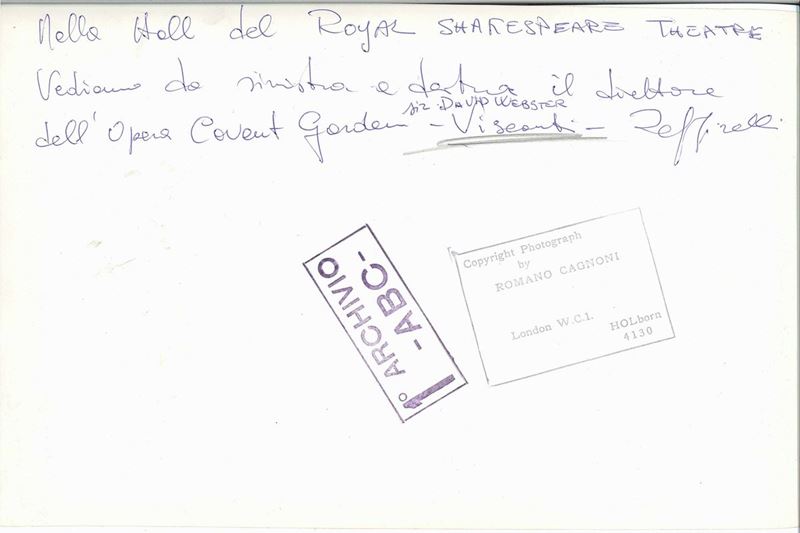 Nella Hall del ROYAL SHAKESPEARE THEATRE
Vediamo da sinistra a destra il direttore
sir DAVID WEBSTER
dell'Opera Covent Garden - Visconti - Zeffirelli
1° ARCHIVIO
-ABC-
Copyright Photograph
by
ROMANO CAGNONI
London W.C.1.
HOLborn
4130